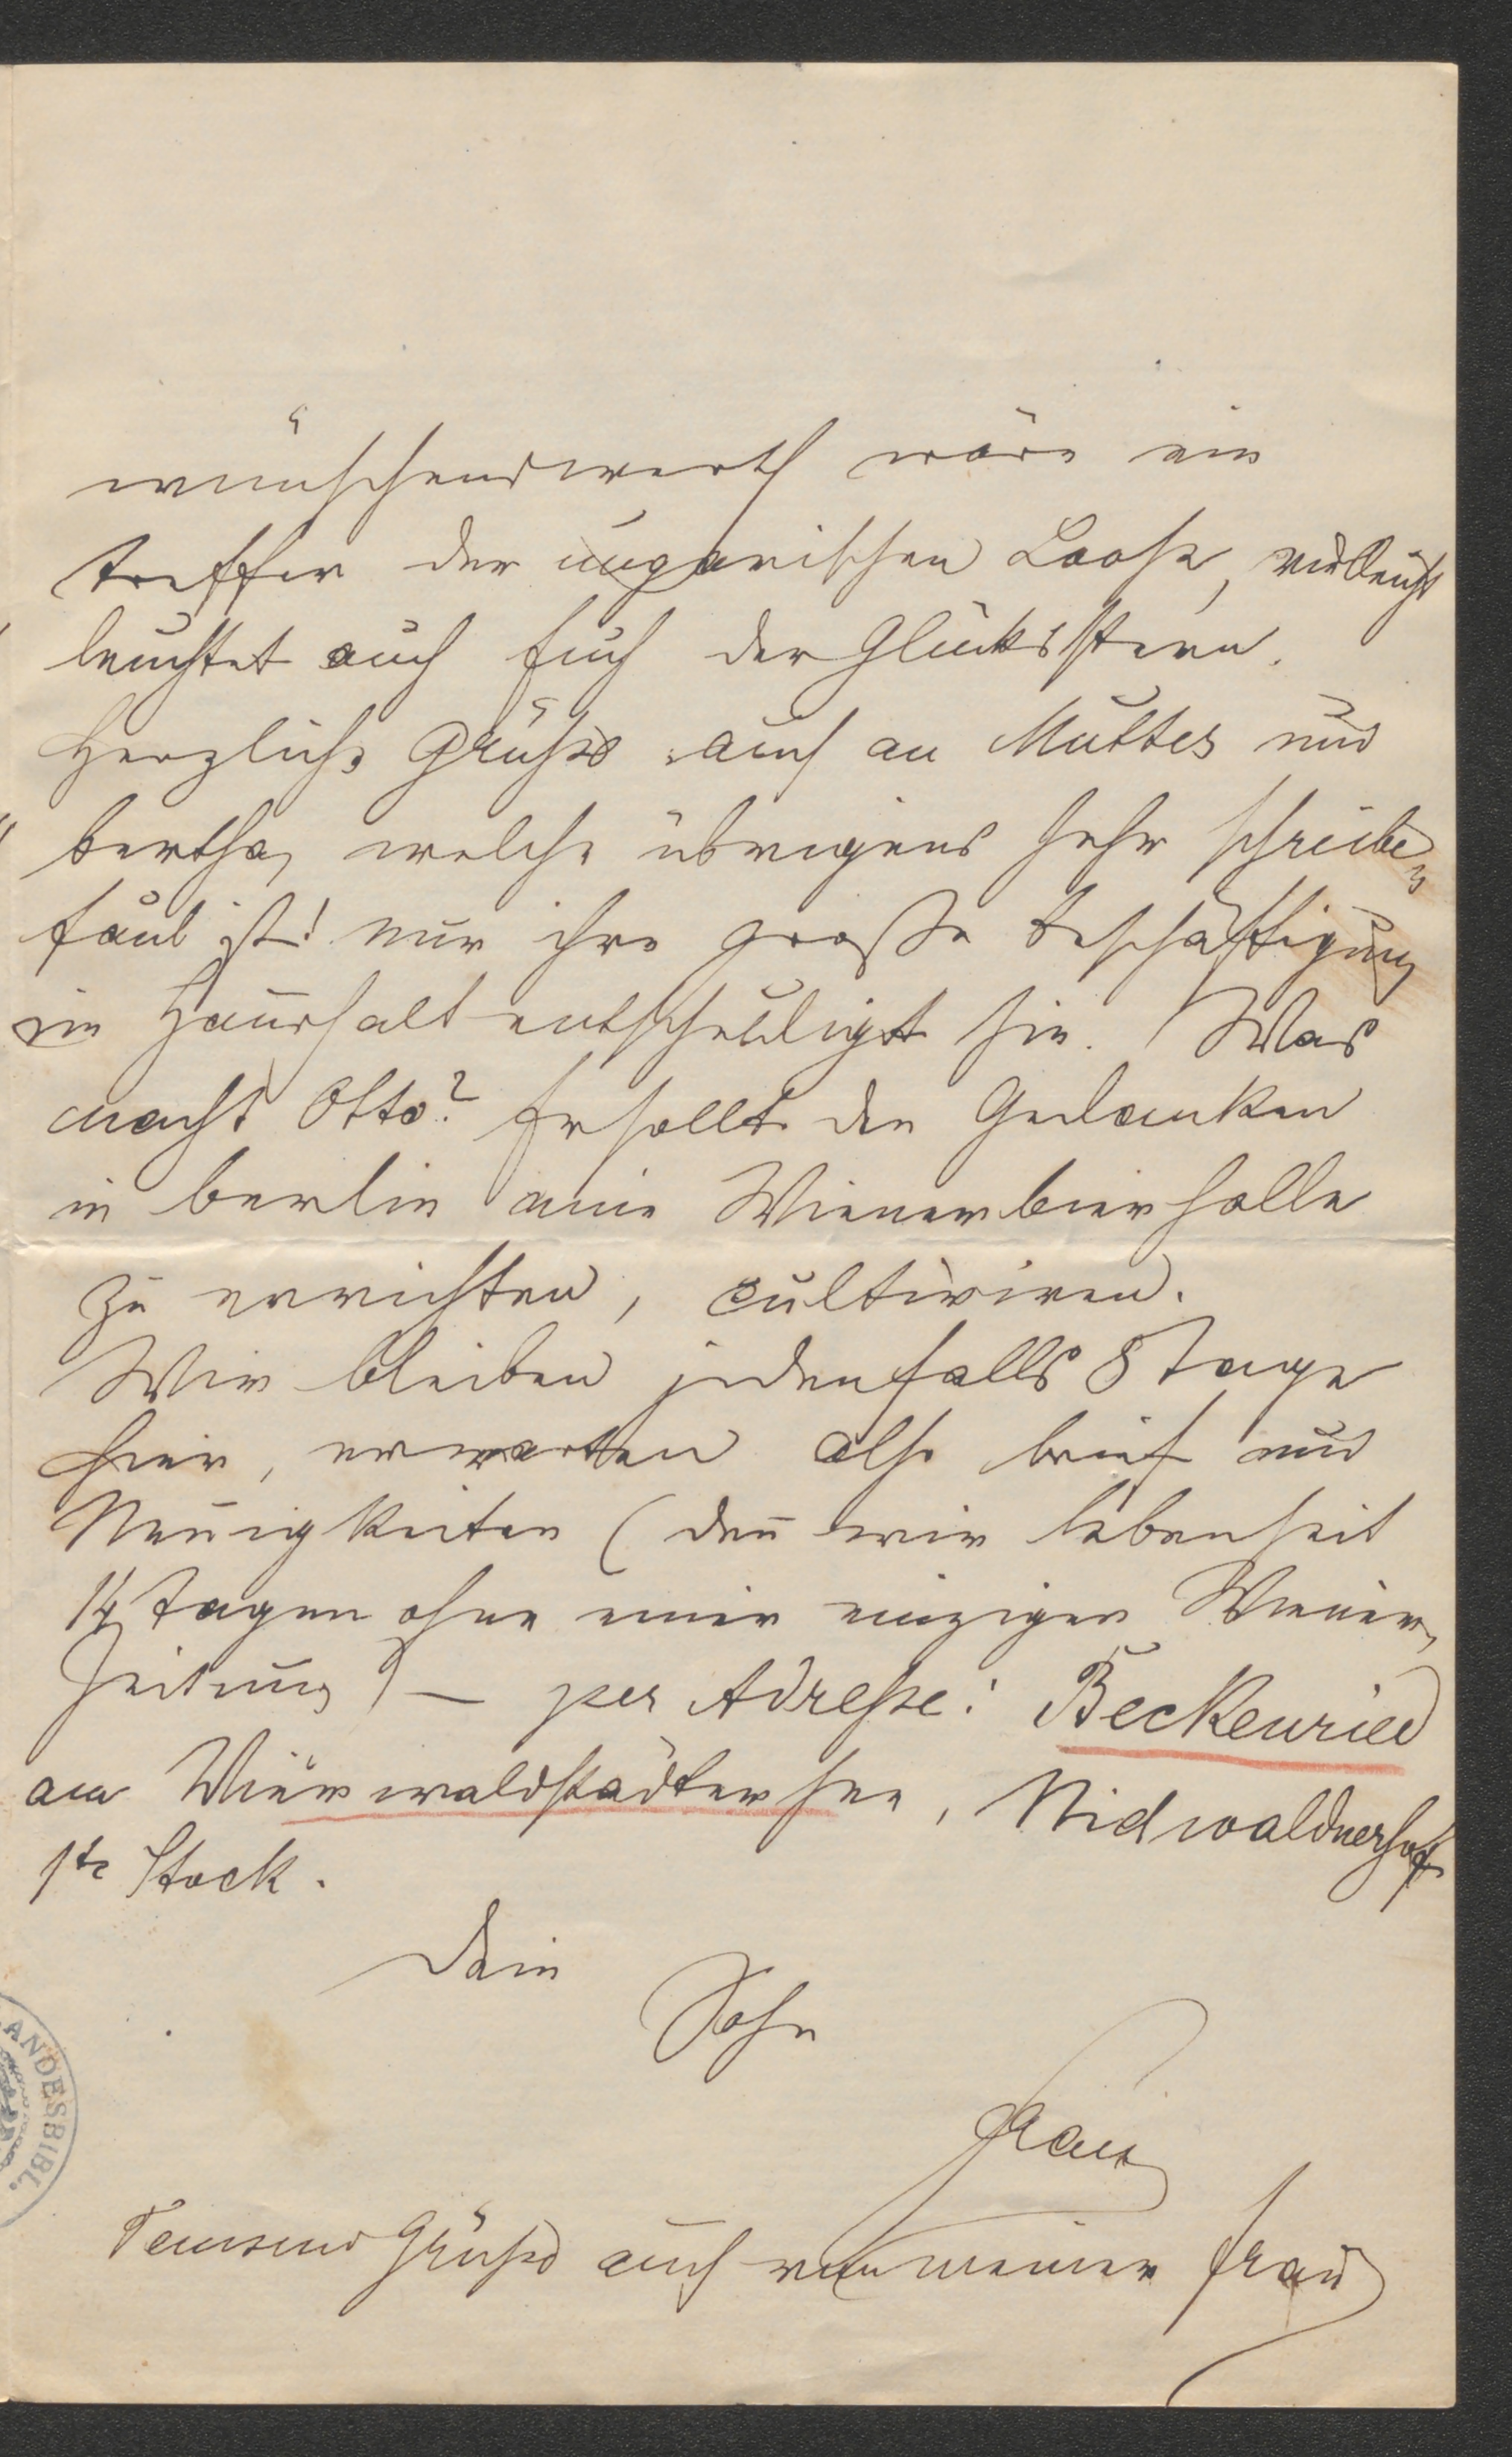 wünschenswerth wäre ein
Treffer der ungarischen Loose, vielleicht
leuchtet auch Euch der Glücksstern.
Herzliche Grüße auch an Mutter und
Bertha, welche übrigens sehr schreibe„
faul ist! nur ihre große Beschäftigung
im Haushalt entschuldigt sie. Was
macht Otto? Er sollte den Gedanken
in Berlin eine Wienerbierhalle
zu errichten, cultiviren.
Wir bleiben jedenfalls 8 Tage
hier, erwarten also Brief und
Neuigkeiten (den̄ wir leben seit
14 Tagen ohne einer einzigen Wiener„
Zeitung) – per Adresse: Beckenried
am Vierwaldstädtersee, Nidwaldnerhof
1te Stock.
Dein
Sohn
Tausend Grüße auch von meiner Frau
ANDESBIBL.